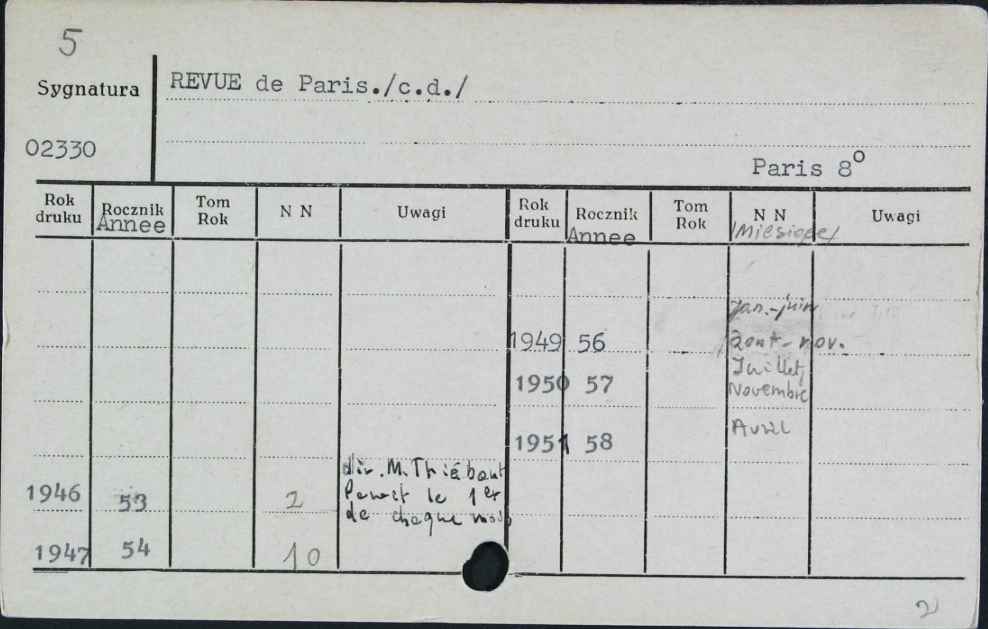 5
Sygnatura
REVUE de Paris./c.d./
02330
Paris 8°
Rok druku Rocznik Annee Tom Rok N N Uwagi
1946 53 2 dir. M. Thiébaut
Parait le 1er
de chaque mois
1947 54 10
Rok druku Rocznik Annee Tom Rok N N /Miesiące/ Uwagi
1949 56 Jan.-juin
Aout-nov.
1950 57 Juillet,
Novembre
1951 58 Avril
2